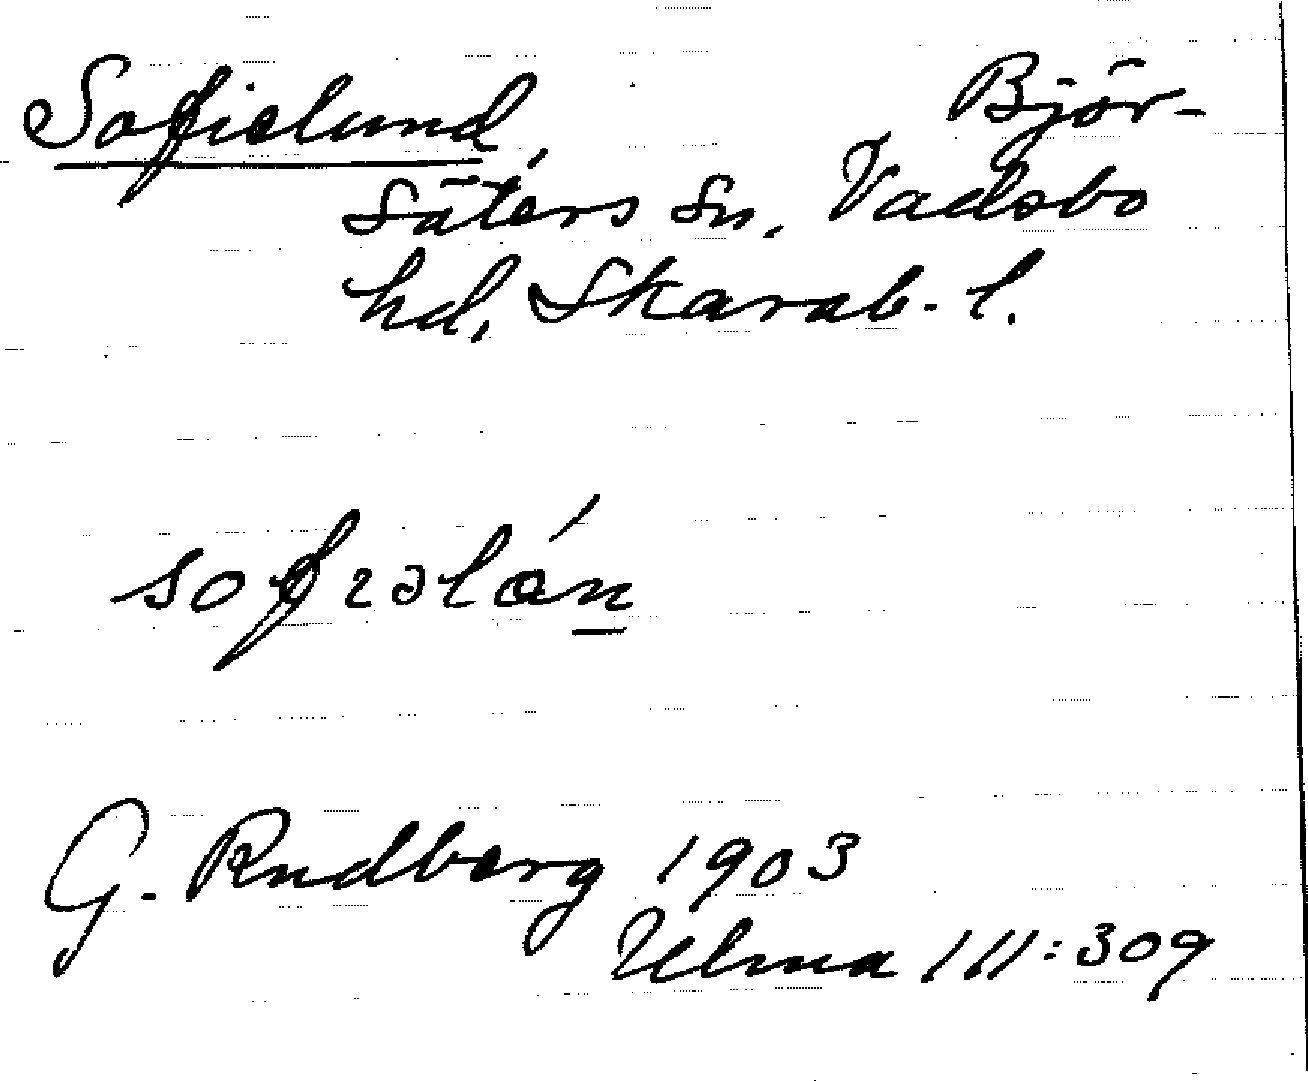 Sofielund, Björ-
säters sn, Vadsbo
hd, Skarab. l.
sofıəlán
G. Rudberg 1903
Ulma 111:309